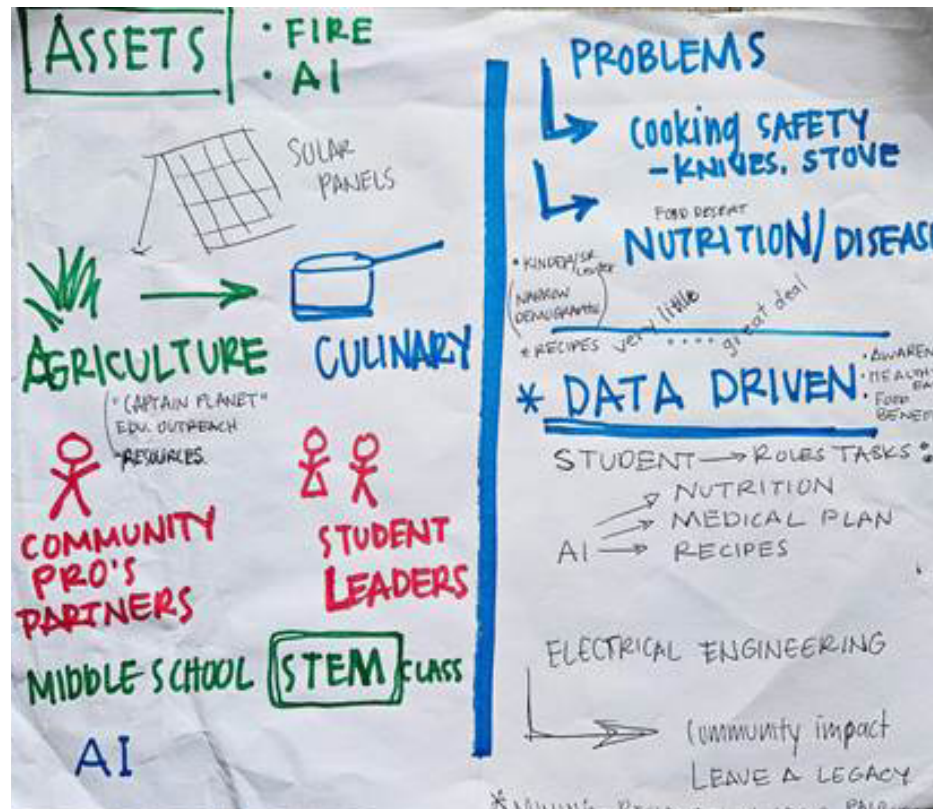 ASSETS
• FIRE
• AI
SOLAR
PANELS
AGRICULTURE
CULINARY
"CAPTAIN PLANET"
EDU. OUTREACH
RESOURCES
COMMUNITY
PRO'S
PARTNERS
STUDENT
LEADERS
MIDDLE SCHOOL STEM CLASS
AI
PROBLEMS
COOKING SAFETY
- KNIVES. STOVE
FOOD DESERT
NUTRITION/DISEASE
• KINDER/SR
NARROW
DEMOGRAPHIC
• RECIPES
very little .... great deal
* DATA DRIVEN
• AWAREN
• HEALTHY
EA
• FOOD
BENEF
STUDENT → ROLES TASKS:
NUTRITION
MEDICAL PLAN
AI → RECIPES
ELECTRICAL ENGINEERING
Community impact
LEAVE A LEGACY